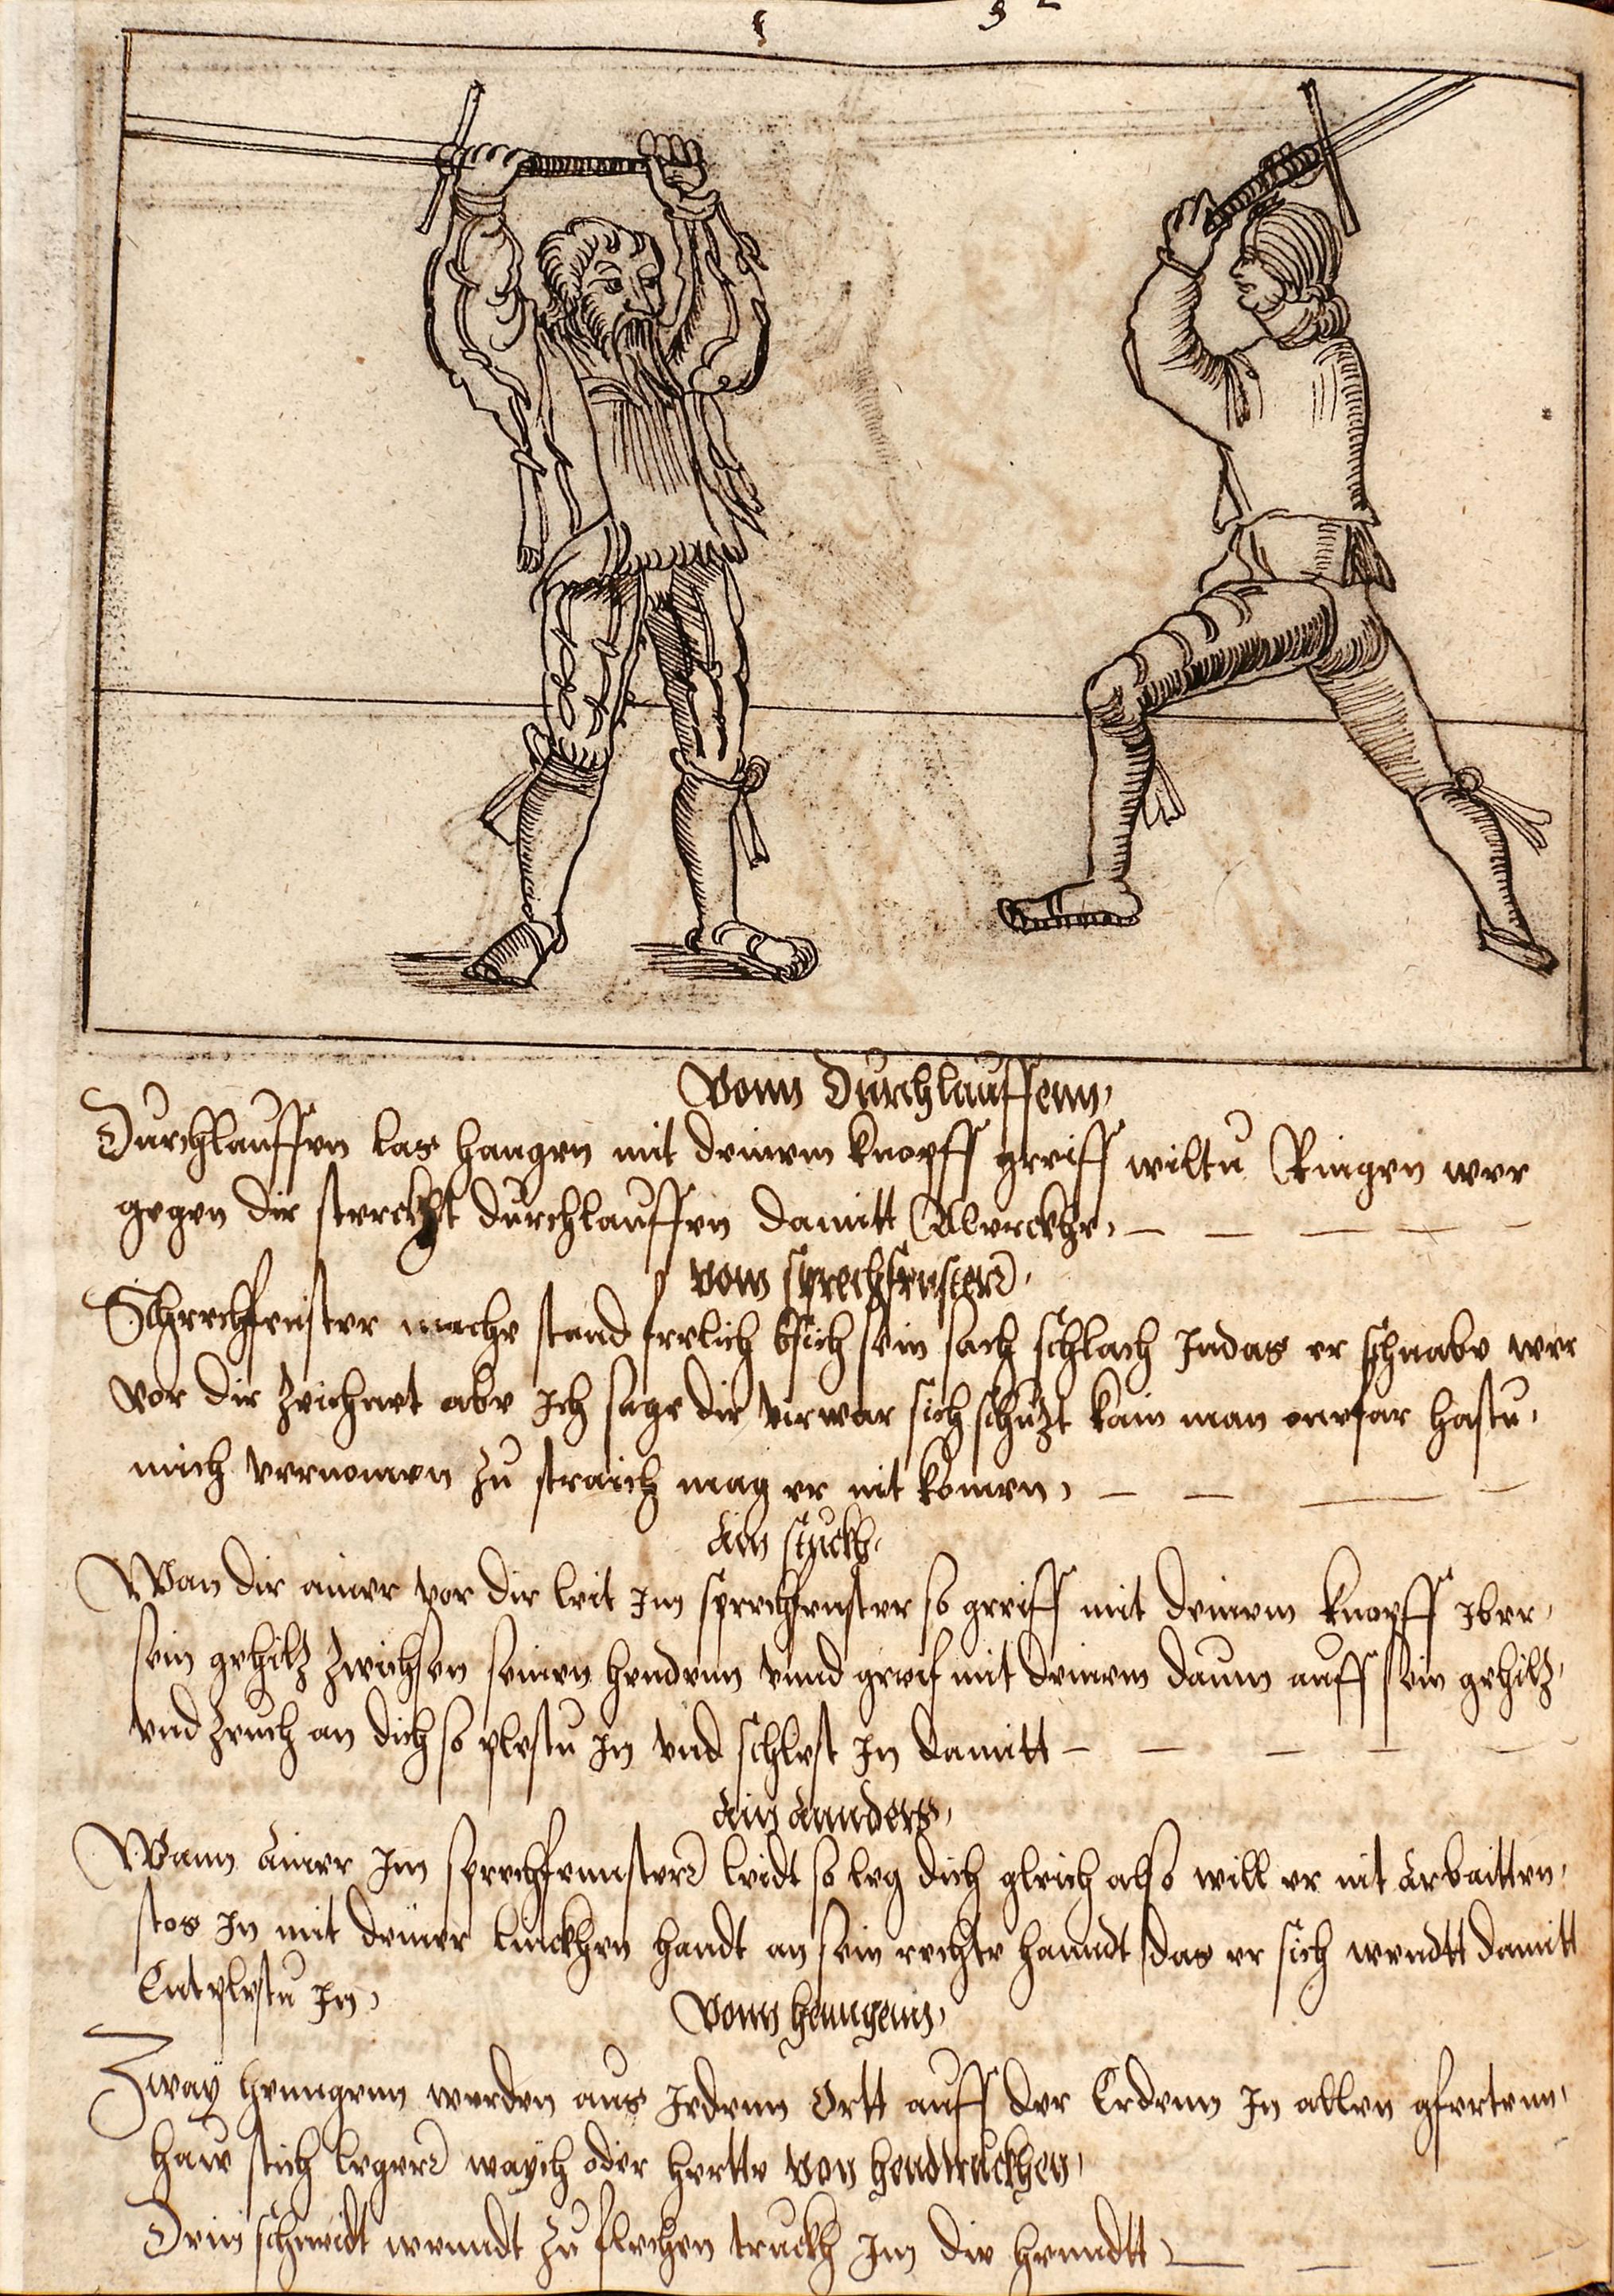 Vonn Durchlauffenn,
Durchlauffen las hangen mit deinem knopff greiff wiltu Ringen wer
gegen dir sterckht durchlauffen damitt Merckhe,
vom sprechfenster
Sprechfenster mache stand frelich bsich sein sach schlach Indas er schnabe wer
vor dir Zeichnet abe Ich sage dir verwar sich schuzt kain man onefar hastu,
mich vernomen zu straich mag er nit komen,
Ain stuckh,
Wan dir ainer vor dir leit Im sprechfenster so greiff mit deinem knopff Iber,
sein gehilz zwichsen seinen hendenn vnnd greif mit deinem daum auff sein gehilz,
vnd zeuch an dich so plestu In vnd schlest In damitt
Ain annders,
Wann Ainer Im sprechfennster leidt so leg dich gleich also will er nit Arbaitten,
stos In mit deiner linckhen handt an sein rechte hanndt das er sich wendtt damitt
Entplestu In,
Vonn henngenn,
Zway henngenn werden aus Jedenn Ortt auff der Erdenn In allen gfertenn,
haw stich leger waych oder hertte von hendtruckhen,
Dein schneidt wenndt zu flechen truckh Im die henndtt